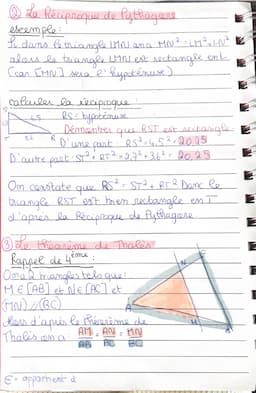 ② La Réciproque de Pythagore
exemple:
Si dans le triangle LMN on a MN² = LM² + LN²
alors le triangle LMN est rectangle en L
(car [MN] sera l'hypoténuse)
calculer la réciproque:
RS = hypoténuse
Démontrer que RST est rectangle
D'une part RS² = 4,5² = 20,25
D'autre part ST² + RT² = 2,7² + 3,6² = 20,25
On constate que RS² = ST² + RT² Donc le
triangle RST est bien rectangle en T
d'après la Réciproque de Pythagore
③ Le théorème de Thalès
Rappel de 4ème:
On a 2 triangles tels que:
M ∈ [AB] et N ∈ [AC] et
(MN) // (BC)
Alors d'après le théorème de
Thalès on a AM/AB = AN/AC = MN/BC
A
N
M
∈ = appartient à